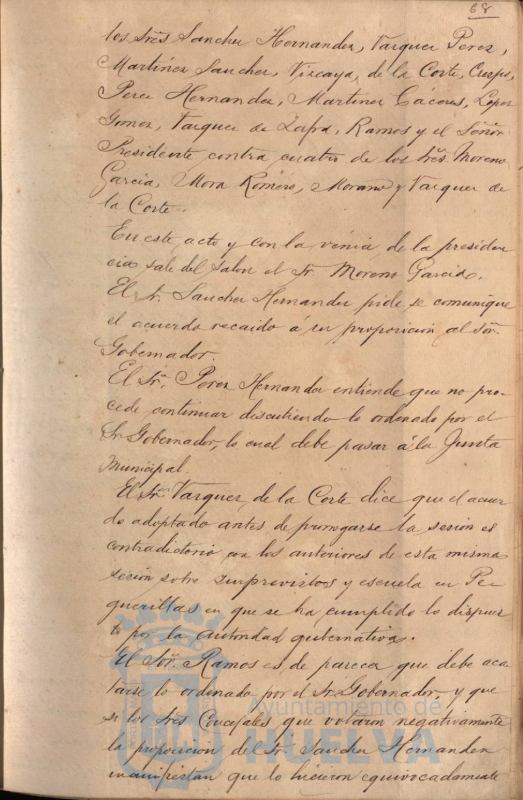 68
los Srẽs Sanchez Hernandez, Vazquez Perez,
Martinez Sanchez, Vizcaya, de la Corte, Crespo,
Perez Hernandez, Martinez Cáceres, Lopez
Gomez, Vazquez de Zafra, Ramos y el Señor
Presidente contra cuatro de los Srẽs Moreno
Garcia, Mora Romero, Morano y Vazquez de
la Corte.
En este acto y con la venia de la presiden
cia sale del salon el Sr. Moreno Garcia.
El Sr. Sanchez Hernandez pide se comunique
el acuerdo recaido á su proposicion al Sõr.
Gobernador.
El Sr. Perez Hernandez entiende que no pro-
cede continuar discutiendo lo ordenado por el
Sr Gobernador, lo cual debe pasar á la Junta
Municipal.
El Sr. Vazquez de la Corte dice que el acuer
do adoptado antes de prorrogarse la sesion es
contradictorio con los anteriores de esta misma
sesion sobre imprevistos y escuela en Pe
guerillas en que se ha cumplido lo dispues
to por la autoridad gubernativa.
El Sõr. Ramos es de parecer que debe aca
tarse lo ordenado por el Sr. Gobernador, y que
si los Srẽs Concejales que votaron negativamente
la proposicion del Sr. Sanchez Hernandez
manifiestan que lo hicieron equivocadamente
Ayuntamiento de
HUELVA